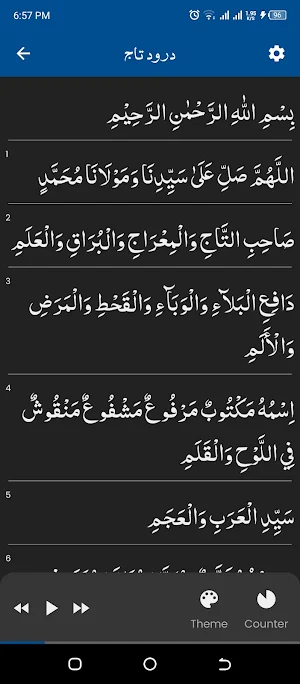 6:57 PM
3.95 KB/s 96
درود تاج
بِسْمِ اللهِ الرَّحْمٰنِ الرَّحِيْمِ
1
اللَّهُمَّ صَلِّ عَلَىٰ سَيِّدِنَا وَمَوْلَانَا مُحَمَّدٍ
2
صَاحِبِ التَّاجِ وَالْمِعْرَاجِ وَالْبُرَاقِ وَالْعَلَمِ
3
دَافِعِ الْبَلَاءِ وَالْوَبَاءِ وَالْقَحْطِ وَالْمَرَضِ
وَالْأَلَمِ
4
اِسْمُهُ مَكْتُوبٌ مَرْفُوعٌ مَشْفُوعٌ مَنْقُوشٌ
فِي اللَّوْحِ وَالْقَلَمِ
5
سَيِّدِ الْعَرَبِ وَالْعَجَمِ
6
Theme Counter